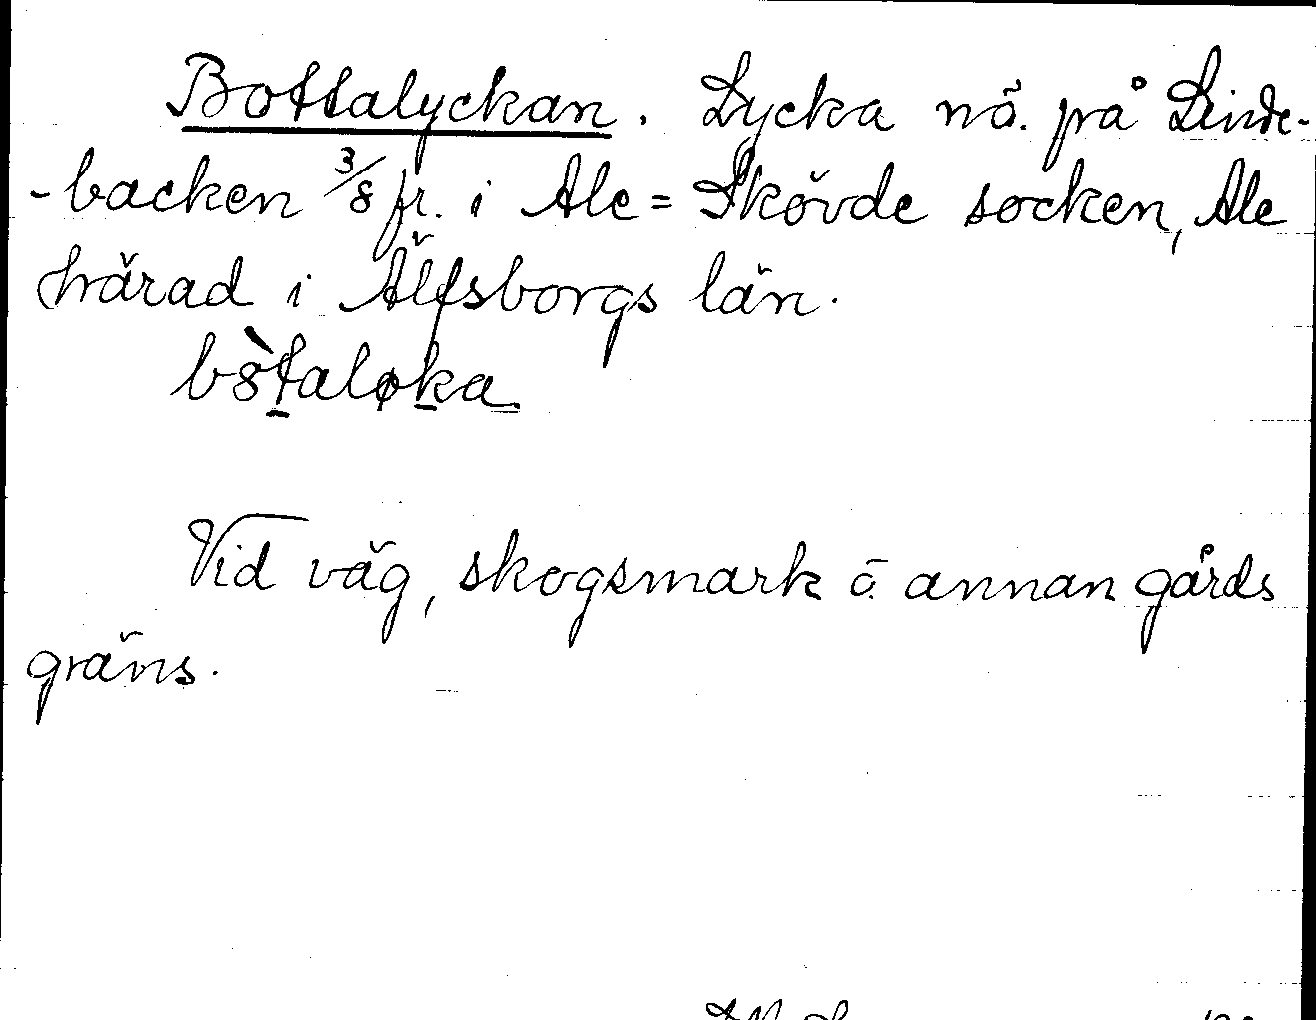 Bottalyckan. Lycka nö. på Linde-
-backen 3/8 fr. i Ale=Skövde socken, Ale
härad i Älfsborgs län.
Vid väg, skogsmark o. annan gårds
gräns.